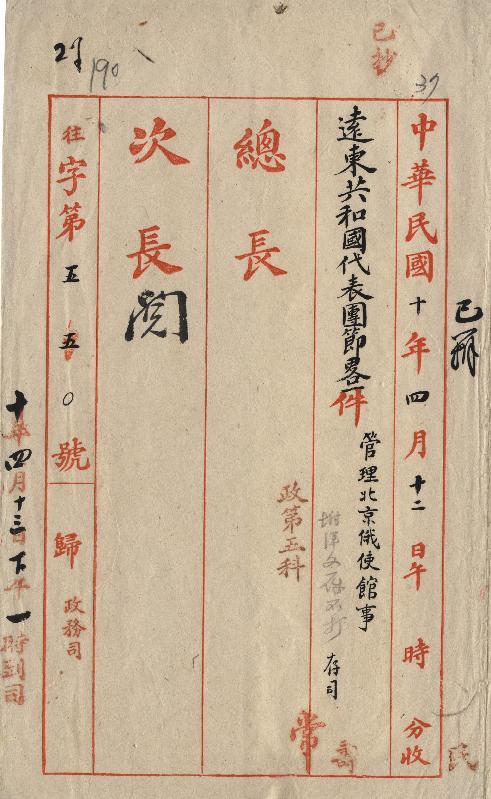 已抄
37
190
中華民國十年四月十二日午時分收
已辦
遠東共和國代表團節畧一件
管理北京俄使館事
存司
政第五科
常
總長
次長
閱
往字第五五〇號
歸政務司
十年四月十三日下午一時到司